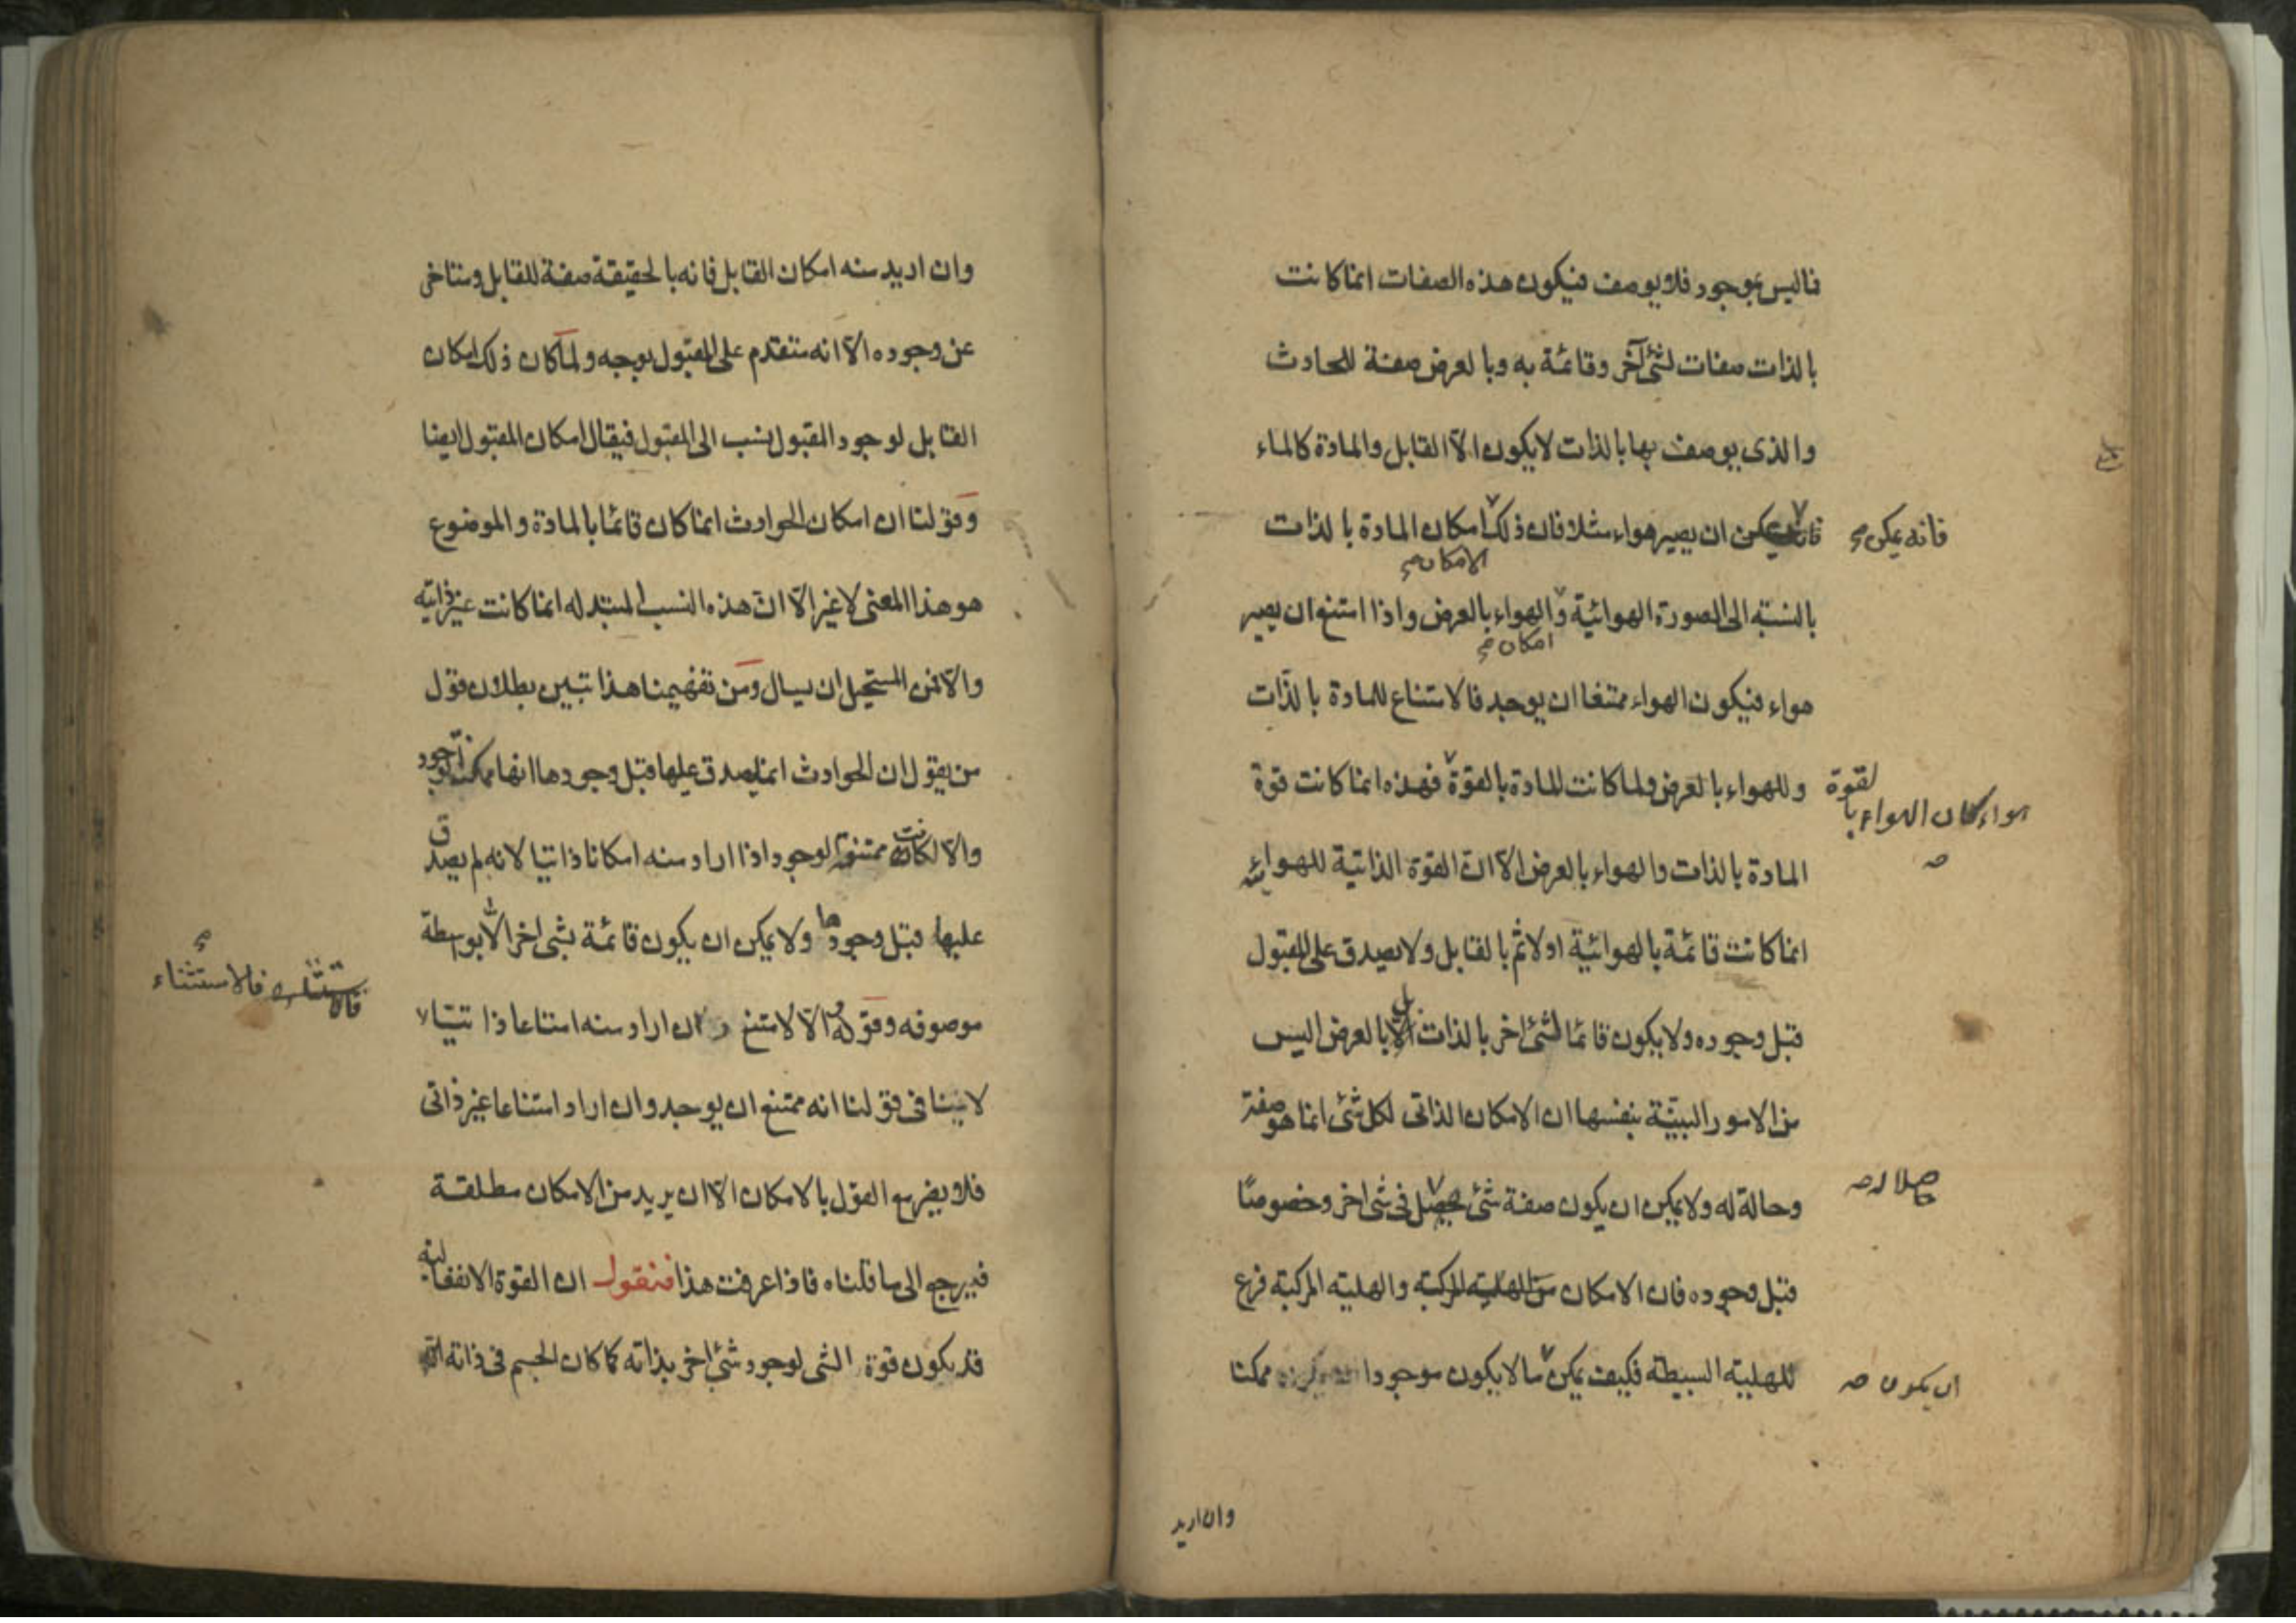 فاليس بموجود فلا يوصف فيكون هذه الصفات انما كانت
بالذات صفات لشئ آخر وقائمة به وبالعرض صفة للحادث
والذى يوصف بها بالذات لا يكون الا القابل والمادة كالماء
ان يصير هواء مثلا فان ذلك امكان المادة بالذات
فانه يمكن
الامكان
بالنسبة الى الصورة الهوائية والهواء بالعرض واذا امتنع ان يصير
امكان
هواء فيكون الهواء ممتنعا ان يوجد فالامتناع للمادة بالذّات
وللهواء بالعرض ولما كانت المادة بالقوة فهذه انما كانت قوة
هواء كان الهواء بالقوة
المادة بالذات والهواء بالعرض الا ان القوة الذاتية للهوائية
انما كانت قائمة بالهوائية اولا ثم بالقابل ولا يصدق على المقبول
قبل وجوده ولا يكون قائما لشئ اخر بالذات بل بالعرض اليس
من الامور البيّنة بنفسها ان الامكان الذاتى لكل شئ انما هو صفة
وحالة له ولا يمكن ان يكون صفة شئ يحصل فى شئ اخر وخصوصًا
حاصلا له
قبل وجوده فان الامكان من الهلية المركبة والهلية المركبة فرع
للهلية البسيطة فكيف يمكن ما لا يكون موجودا ممكنا
ان يكون
وان اريد
وان اريد منه امكان القابل فانه بالحقيقة صفة للقابل ومتاخر
عن وجوده الا انه متقدم على المقبول بوجه ولما كان ذلك امكان
القابل لوجود المقبول ينسب الى المقبول فيقال امكان المقبول ايضا
وقولنا ان امكان الحوادث انما كان قائما بالمادة والموضوع
هو هذا المعنى لا غير الا ان هذه النسب المبتدله انما كانت غير ذاتية
والا فمن المستحيل ان يسال ومن تفهيمنا هذا تبين بطلان قول
من يقول ان الحوادث انما يصدق عليها قبل وجودها انها ممكنة الوجود
والا لكانت ممتنعة الوجود اذا اراد منه امكانا ذاتيا لانه لم يصدق
عليها قبل وجودها ولا يمكن ان يكون قائمة بشئ اخر الا بواسطة
موصوفه وقوله والا لامتنع ان اراد منه امتناعا ذاتيا
فالاستثناء
لا ينافى قولنا انه ممتنع ان يوجد وان اراد امتناعا غير ذاتى
فلا يضر مع القول بالامكان الا ان يريد من الامكان مطلقة
فيرجع الى ما قلناه فاذا عرفت هذا فنقول ان القوة الانفعالية
قد يكون قوة الشى لوجود شئ اخر بذاته كما كان الجسم فى ذاته